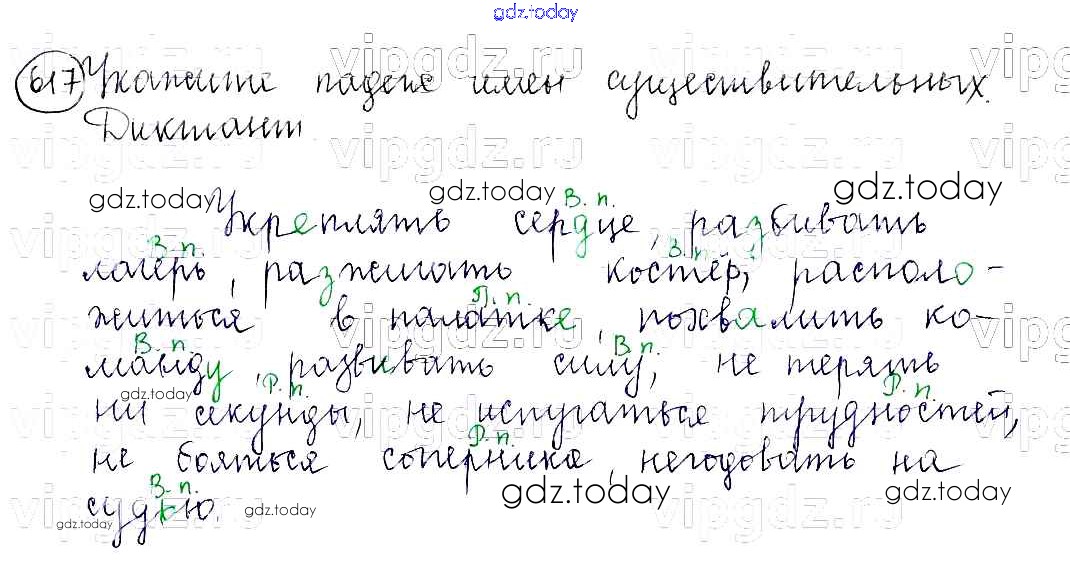 gdz.today
617 Укажите падеж имен существительных.
Диктант.
gdz.today gdz.today gdz.today
В. п.
Укреплять сердце, разбивать
В. п. В. п.
лагерь, разжигать костёр, располо-
П. п.
житься в палатке, похвалить ко-
В. п. В. п.
манду, развивать силу, не терять
gdz.today Р. п. Р. п.
ни секунды, не испугаться трудностей,
Р. п.
не бояться соперника, негодовать на
В. п.
судью.
gdz.today gdz.today gdz.today gdz.today
vipgdz.ru vipgdz.ru vipgdz.ru